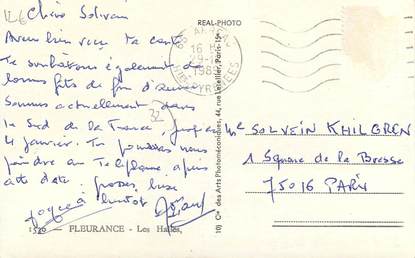 126
Chère Solvein
Avons bien reçu ta carte
Te souhaitons également de
bonnes fêtes de fin d'année
Sommes actuellement dans
le Sud de la France, jusqu'au
4 janvier. Tu pourras nous
joindre au Téléphone, après
cette date. grosses bises
à bientôt
32
1520 - FLEURANCE - Les Halles
REAL-PHOTO
16 H
1989
PYRENEES
10) Cie des Arts Photomécaniques, 44, rue Letellier, Paris-15e
Me SOLVEIN KHILGREN
1 Square de la Bresse
75016 PARIS